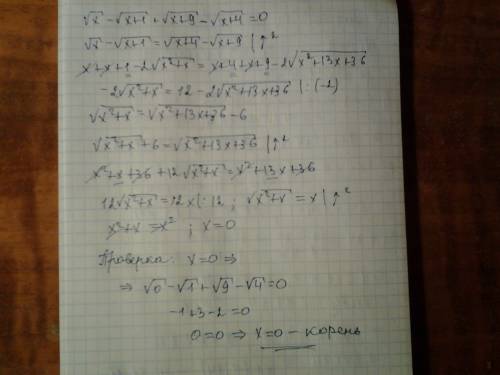 √x - √(x+1) + √(x+9) - √(x+4) = 0
√x - √(x+1) = √(x+4) - √(x+9) |↑²
x + x + 1 - 2√(x²+x) = x + 4 + x + 9 - 2√(x²+13x+36)
-2√(x²+x) = 12 - 2√(x²+13x+36) |:(-2)
√(x²+x) = √(x²+13x+36) - 6
√(x²+x) + 6 = √(x²+13x+36) |↑²
x² + x + 36 + 12√(x²+x) = x² + 13x + 36
12√(x²+x) = 12x |:12 ; √(x²+x) = x |↑²
x² + x = x² ; x = 0
Проверка: x = 0 ⇒
⇒ √0 - √1 + √9 - √4 = 0
-1 + 3 - 2 = 0
0 = 0 ⇒ x = 0 - корень